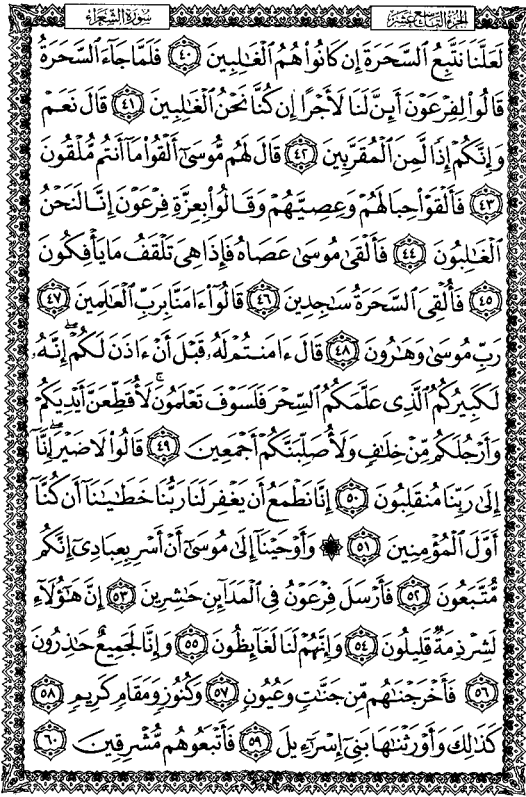 سورة الشعراء
الجزء التاسع عشر
لَعَلَّنَا نَتَّبِعُ السَّحَرَةَ إِن كَانُوا۟ هُمُ الْغَـٰلِبِينَ ٤٠ فَلَمَّا جَآءَ السَّحَرَةُ
قَالُوا۟ لِفِرْعَوْنَ أَئِنَّ لَنَا لَأَجْرًا إِن كُنَّا نَحْنُ الْغَـٰلِبِينَ ٤١ قَالَ نَعَمْ
وَإِنَّكُمْ إِذًا لَّمِنَ الْمُقَرَّبِينَ ٤٢ قَالَ لَهُم مُّوسَىٰٓ أَلْقُوا۟ مَآ أَنتُم مُّلْقُونَ
٤٣ فَأَلْقَوْا۟ حِبَالَهُمْ وَعِصِيَّهُمْ وَقَالُوا۟ بِعِزَّةِ فِرْعَوْنَ إِنَّا لَنَحْنُ
الْغَـٰلِبُونَ ٤٤ فَأَلْقَىٰ مُوسَىٰ عَصَاهُ فَإِذَا هِىَ تَلْقَفُ مَا يَأْفِكُونَ
٤٥ فَأُلْقِىَ السَّحَرَةُ سَـٰجِدِينَ ٤٦ قَالُوٓا۟ ءَامَنَّا بِرَبِّ الْعَـٰلَمِينَ ٤٧
رَبِّ مُوسَىٰ وَهَـٰرُونَ ٤٨ قَالَ ءَامَنتُمْ لَهُۥ قَبْلَ أَنْ ءَاذَنَ لَكُمْ ۖ إِنَّهُۥ
لَكَبِيرُكُمُ الَّذِى عَلَّمَكُمُ السِّحْرَ فَلَسَوْفَ تَعْلَمُونَ ۚ لَأُقَطِّعَنَّ أَيْدِيَكُمْ
وَأَرْجُلَكُم مِّنْ خِلَـٰفٍ وَلَأُصَلِّبَنَّكُمْ أَجْمَعِينَ ٤٩ قَالُوا۟ لَا ضَيْرَ ۖ إِنَّآ
إِلَىٰ رَبِّنَا مُنقَلِبُونَ ٥٠ إِنَّا نَطْمَعُ أَن يَغْفِرَ لَنَا رَبُّنَا خَطَـٰيَـٰنَآ أَن كُنَّآ
أَوَّلَ الْمُؤْمِنِينَ ٥١ ۞ وَأَوْحَيْنَآ إِلَىٰ مُوسَىٰٓ أَنْ أَسْرِ بِعِبَادِىٓ إِنَّكُم
مُّتَّبَعُونَ ٥٢ فَأَرْسَلَ فِرْعَوْنُ فِى الْمَدَآئِنِ حَـٰشِرِينَ ٥٣ إِنَّ هَـٰٓؤُلَآءِ
لَشِرْذِمَةٌ قَلِيلُونَ ٥٤ وَإِنَّهُمْ لَنَا لَغَآئِظُونَ ٥٥ وَإِنَّا لَجَمِيعٌ حَـٰذِرُونَ
٥٦ فَأَخْرَجْنَـٰهُم مِّن جَنَّـٰتٍ وَعُيُونٍ ٥٧ وَكُنُوزٍ وَمَقَامٍ كَرِيمٍ ٥٨
كَذَٰلِكَ وَأَوْرَثْنَـٰهَا بَنِىٓ إِسْرَٰٓءِيلَ ٥٩ فَأَتْبَعُوهُم مُّشْرِقِينَ ٦٠